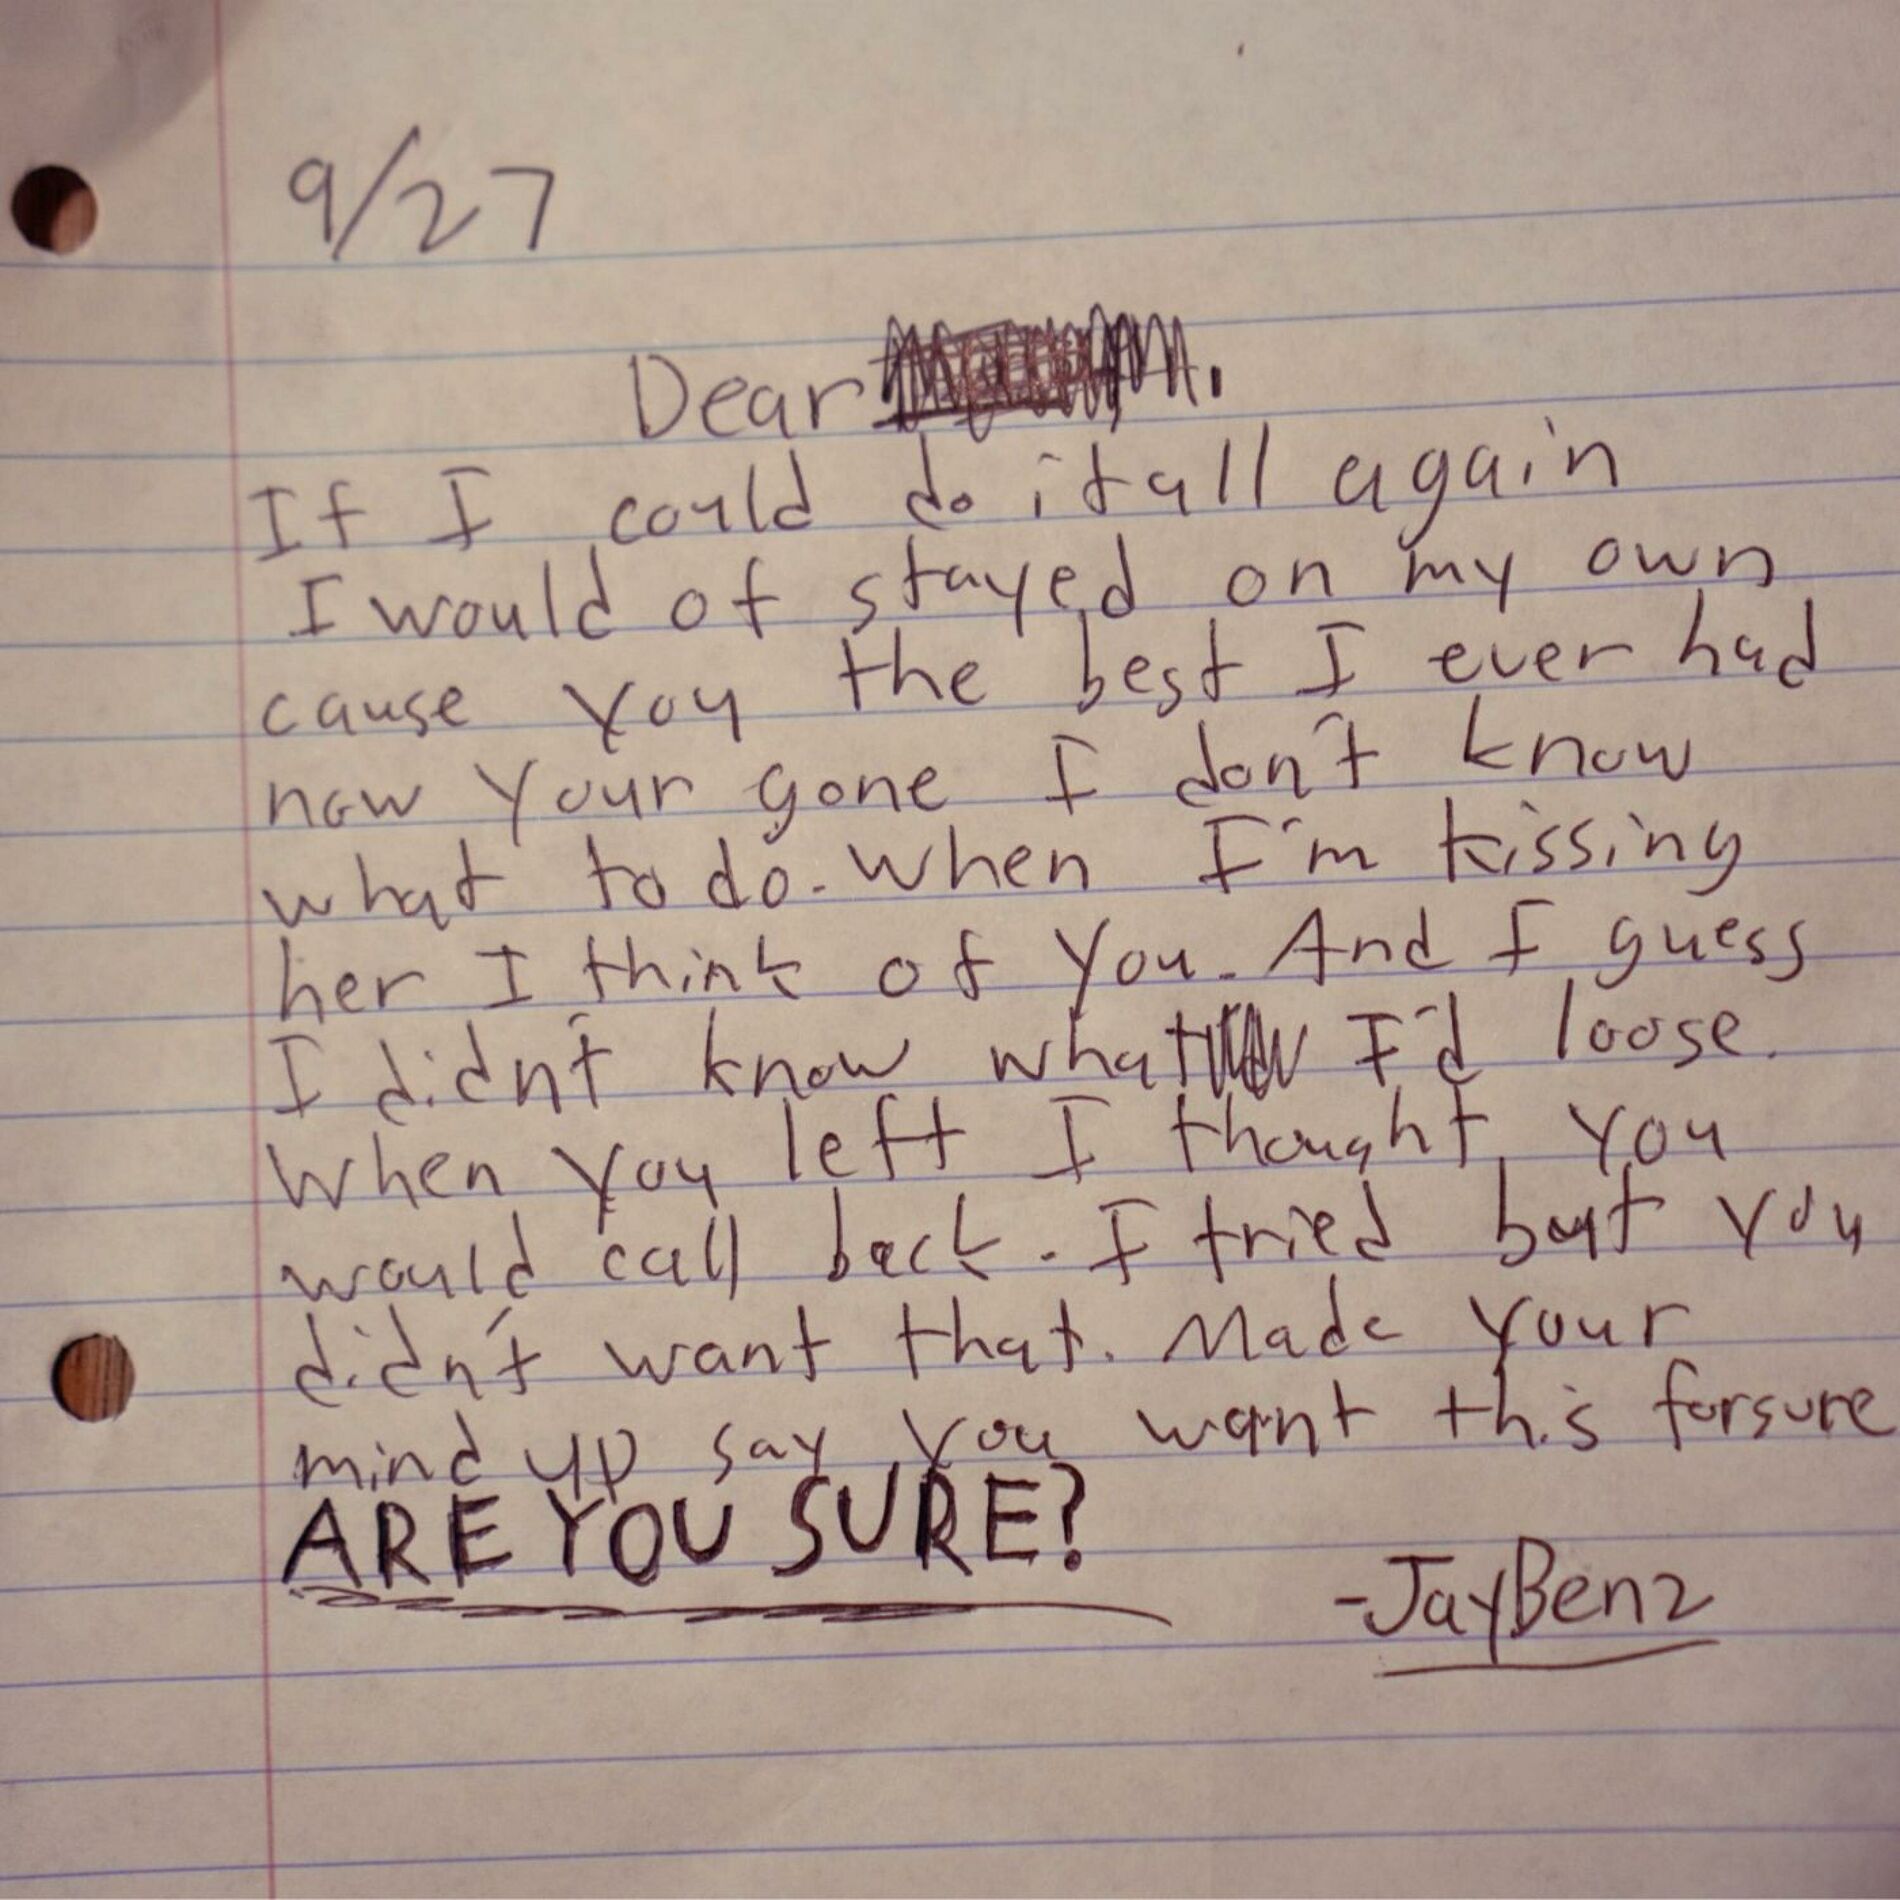 9/27
Dear
If I could do it all again
I would of stayed on my own
cause you the best I ever had
now your gone I don't know
what to do. when I'm kissing
her I think of you. And I guess
I didn't know what I'd loose.
When you left I thought you
would call back. I tried but you
didn't want that. Made your
mind up say you want this forsure
ARE YOU SURE?
-JayBenz